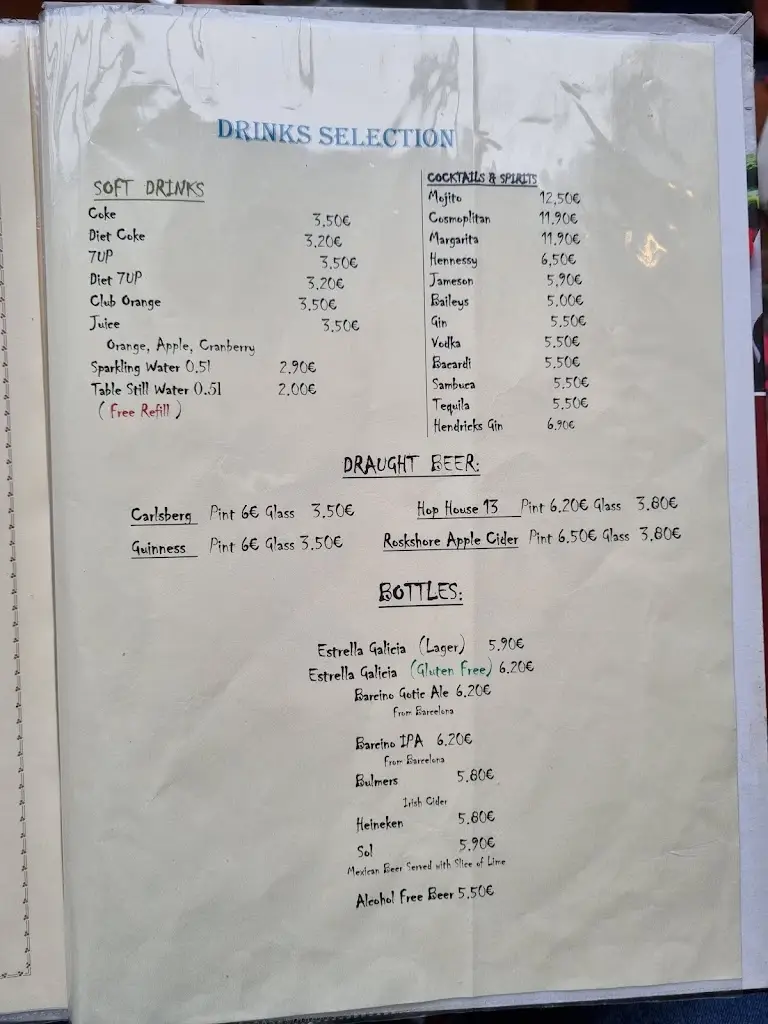 DRINKS SELECTION
SOFT DRINKS
Coke 3,50€
Diet Coke 3.20€
7UP 3.50€
Diet 7UP 3.20€
Club Orange 3.50€
Juice 3.50€
Orange, Apple, Cranberry
Sparkling Water 0.5l 2.90€
Table Still Water 0.5l 2.00€
( Free Refill )
COCKTAILS & SPIRITS
Mojito 12,50€
Cosmoplitan 11.90€
Margarita 11.90€
Hennessy 6,50€
Jameson 5,90€
Baileys 5.00€
Gin 5.50€
Vodka 5.50€
Bacardi 5.50€
Sambuca 5.50€
Tequila 5.50€
Hendricks Gin 6.90€
DRAUGHT BEER:
Carlsberg Pint 6€ Glass 3.50€
Hop House 13 Pint 6.20€ Glass 3.80€
Guinness Pint 6€ Glass 3.50€
Roskshore Apple Cider Pint 6.50€ Glass 3.80€
BOTTLES:
Estrella Galicia (Lager) 5.90€
Estrella Galicia (Gluten Free) 6.20€
Barcino Gotic Ale 6.20€
From Barcelona
Barcino IPA 6.20€
From Barcelona
Bulmers 5.80€
Irish Cider
Heineken 5.80€
Sol 5.90€
Mexican Beer Served with Slice of Lime
Alcohol Free Beer 5.50€